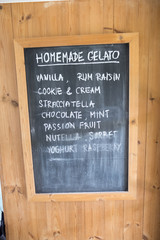 HOMEMADE GELATO
VANILLA, RUM RAISIN
COOKIE & CREAM
STRACCIATELLA
CHOCOLATE, MINT
PASSION FRUIT
NUTELLA SORBET
YOGHURT RASPBERRY